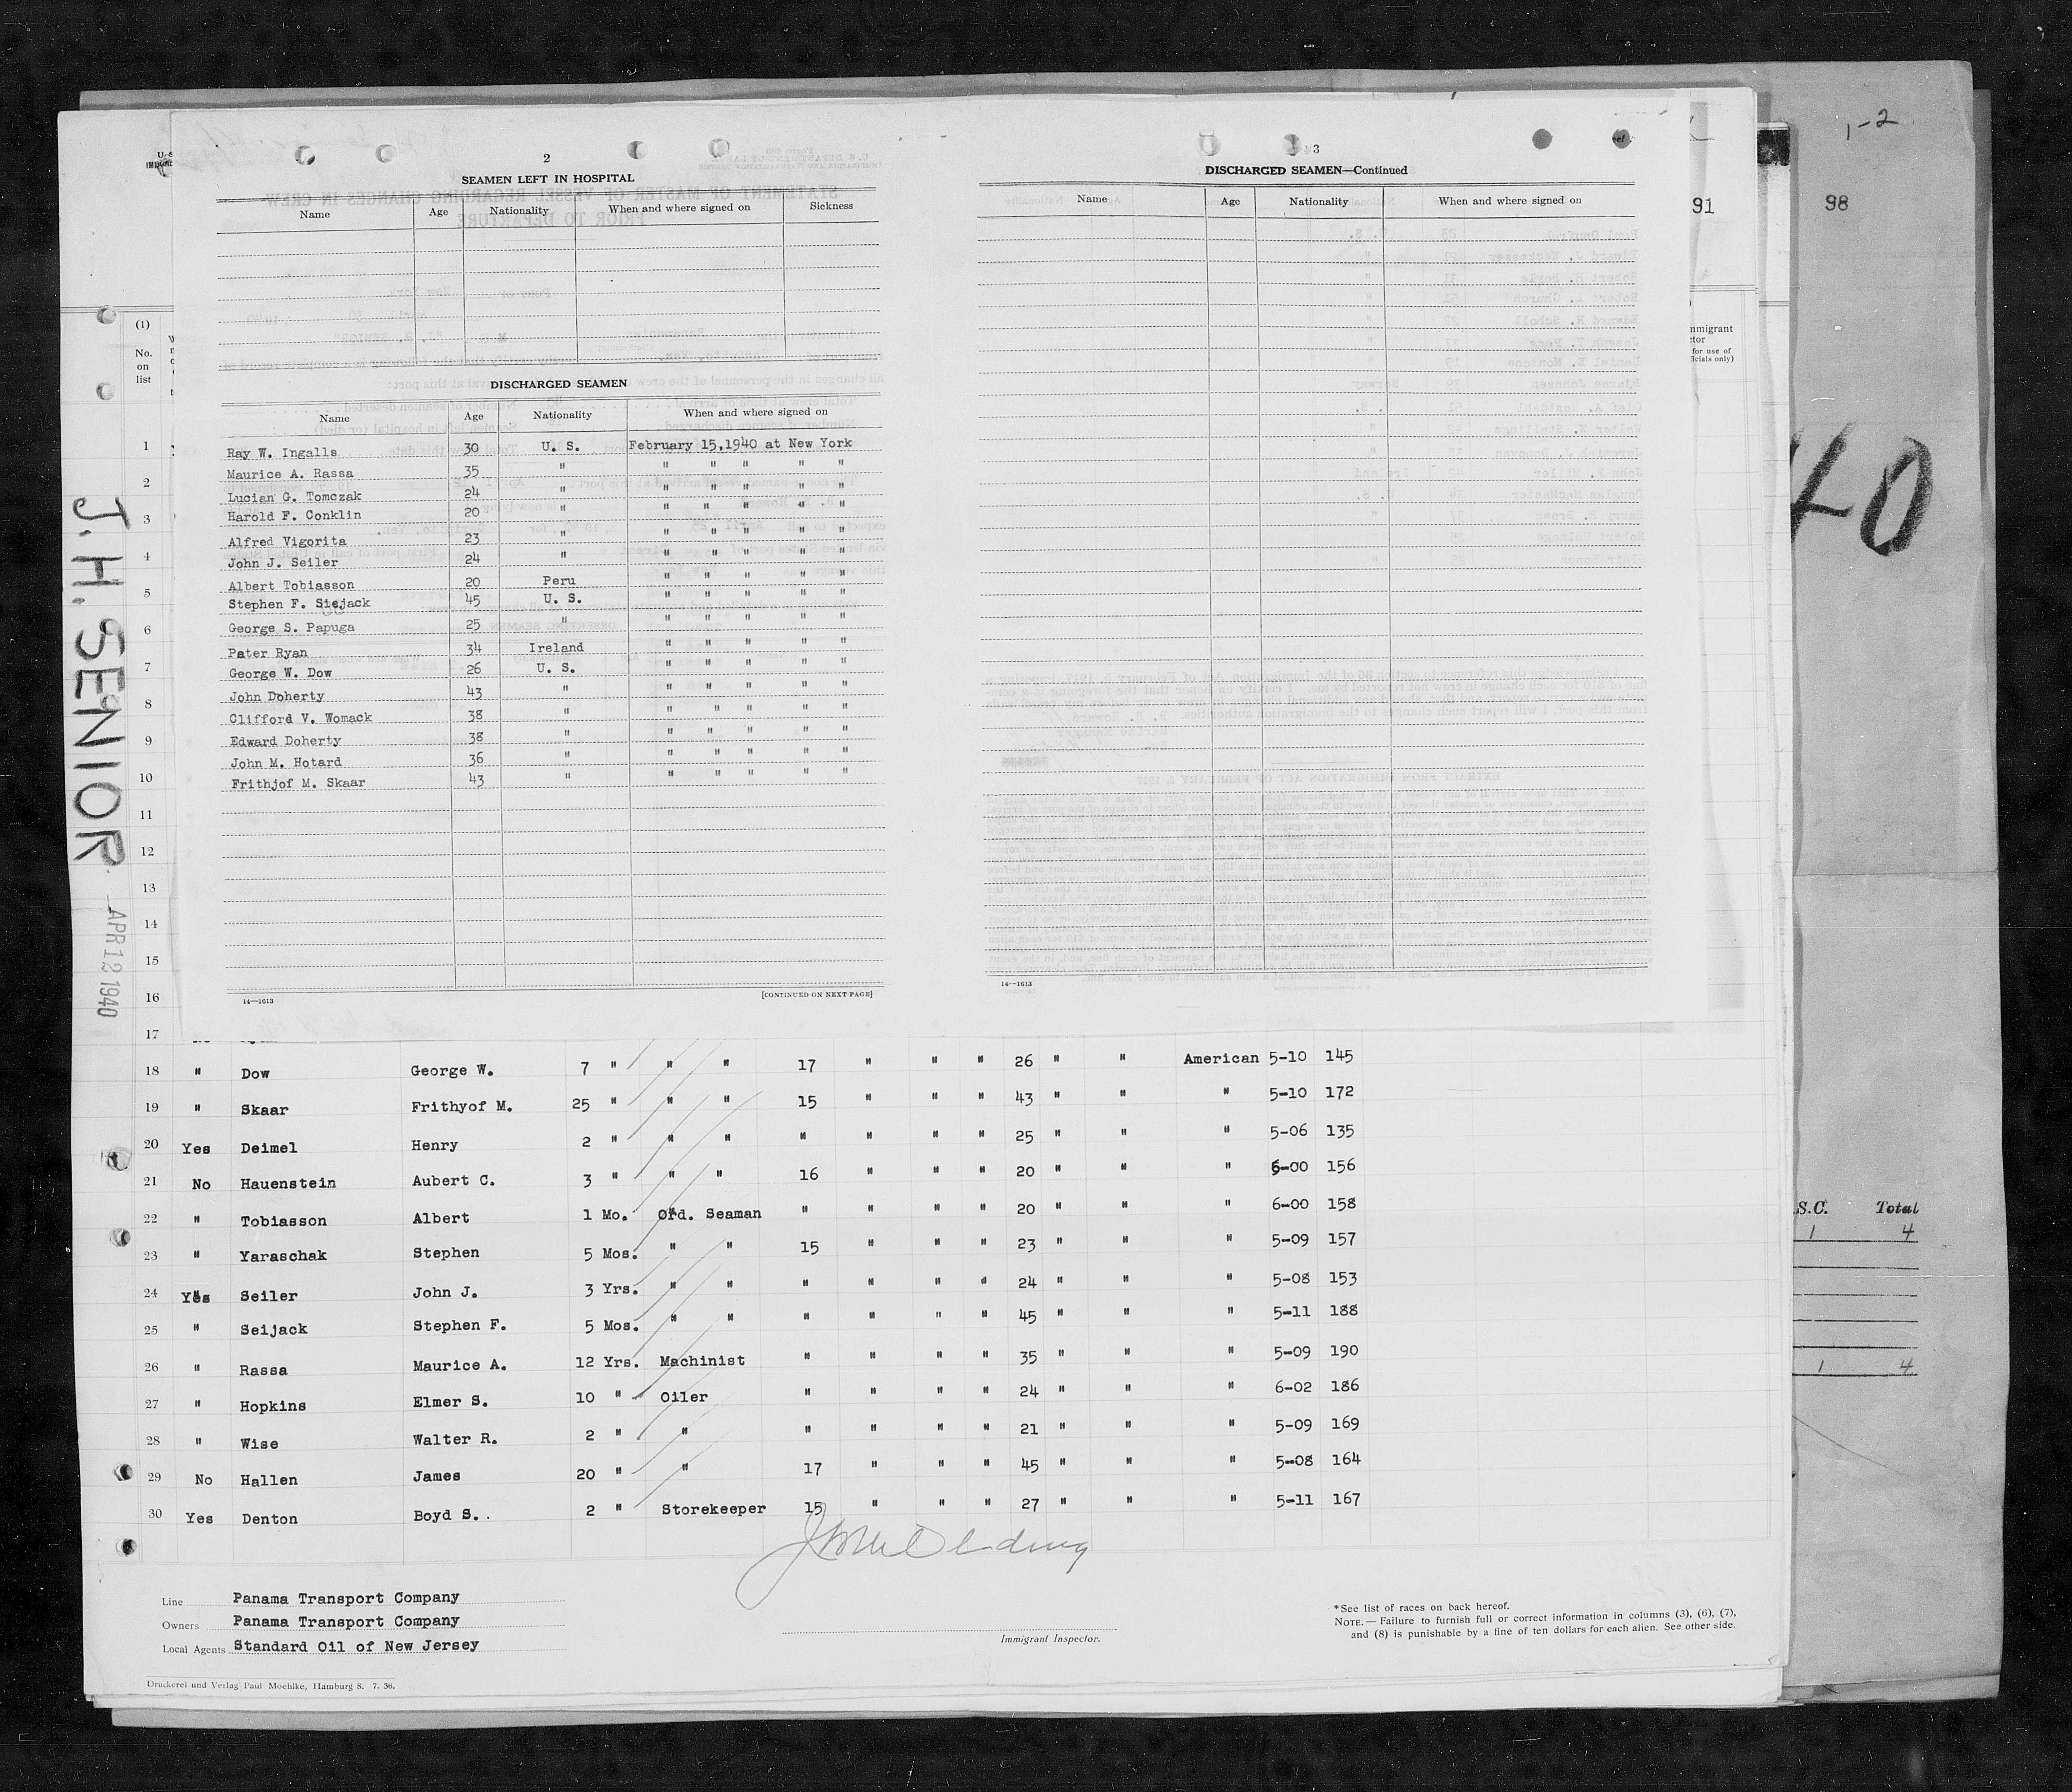 1-2
2
SEAMEN LEFT IN HOSPITAL
Name Age Nationality When and where signed on Sickness
DISCHARGED SEAMEN
Name Age Nationality When and where signed on
Ray W. Ingalls 30 U. S. February 15,1940 at New York
Maurice A. Rassa 35 " " " " " "
Lucian G. Tomczak 24 " " " " " "
Harold F. Conklin 20 " " " " " "
Alfred Vigorita 23 " " " " " "
John J. Seiler 24 " " " " " "
Albert Tobiasson 20 Peru " " " " "
Stephen F. Siejack 45 U. S. " " " " "
George S. Papuga 25 " " " " " "
Pater Ryan 34 Ireland " " " " "
George W. Dow 26 U. S. " " " " "
John Doherty 43 " " " " " "
Clifford V. Womack 38 " " " " " "
Edward Doherty 38 " " " " " "
John M. Hotard 36 " " " " " "
Frithjof M. Skaar 43 " " " " " "
14—1613 [CONTINUED ON NEXT PAGE]
3
DISCHARGED SEAMEN—Continued
Name Age Nationality When and where signed on
14—1613
91
98
40
(1)
No.
on
list
1
2
3
4
5
6
7
8
9
10
11
12
13
14
15
16
17
J.H. SENIOR
APR 12 1940
18 " Dow George W. 7 " " " 17 " " " 26 " " American 5-10 145
19 " Skaar Frithyof M. 25 " " " 15 " " " 43 " " " 5-10 172
20 Yes Deimel Henry 2 " " " " " " " 25 " " " 5-06 135
21 No Hauenstein Aubert C. 3 " " " 16 " " " 20 " " " 6-00 156
22 " Tobiasson Albert 1 Mo. Ord. Seaman " " " " 20 " " " 6-00 158
23 " Yaraschak Stephen 5 Mos. " " 15 " " " 23 " " " 5-09 157
24 Yes Seiler John J. 3 Yrs. " " " " " " 24 " " " 5-08 153
25 " Seijack Stephen F. 5 Mos. " " " " " " 45 " " " 5-11 188
26 " Rassa Maurice A. 12 Yrs. Machinist " " " " 35 " " " 5-09 190
27 " Hopkins Elmer S. 10 " Oiler " " " " 24 " " " 6-02 186
28 " Wise Walter R. 2 " " " " " " 21 " " " 5-09 169
29 No Hallen James 20 " " 17 " " " 45 " " " 5-08 164
30 Yes Denton Boyd S. 2 " Storekeeper 15 " " " 27 " " " 5-11 167
Line Panama Transport Company
Owners Panama Transport Company
Local Agents Standard Oil of New Jersey
Immigrant Inspector.
*See list of races on back hereof.
NOTE.—Failure to furnish full or correct information in columns (3), (6), (7),
and (8) is punishable by a fine of ten dollars for each alien. See other side.
Druckerei und Verlag Paul Moehlke, Hamburg 8. 7. 36.
S.C. Total
1 4
1 4